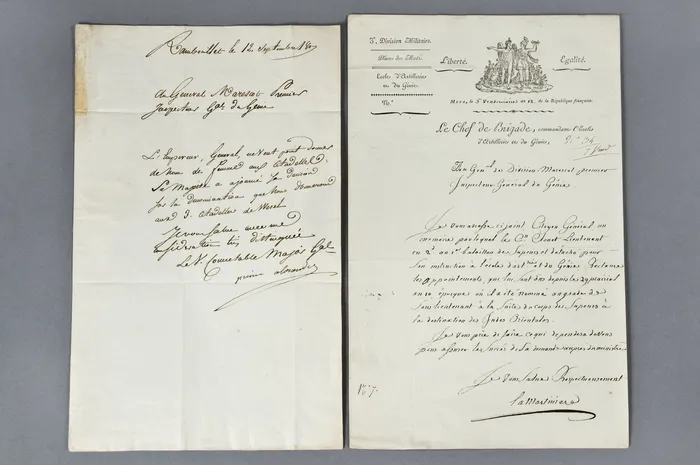 Rambouillet le 12 Septembre 180
Au General Marescot Premier
Inspecteur Gal. du Genie
L'Empereur, General, ne veut point donner
de Nom de femmes aux Citadelles
Sa Majesté a ajourné sa décision
sur la denomination que Nous donnerons
aux 3. Citadelles de Wesel
Je vous salue avec une
considération très distinguée
Le V. Connetable Major Gal.
prince alexandre
3e. Division Militaire.
Place de Metz.
Ecoles d'Artillerie
et du Génie.
N°.
Liberté.
Egalité.
Metz, le 5 Vendemiaire an 12. de la République française.
Le Chef de Brigade, commandant l'Ecole
d'Artillerie et du Génie,
Au Genal. de Division Marescot premier
Inspecteur General du Génie
Je vous adresse ci joint Citoyen Général un
memoire par lequel le Cn. Lieutenant
en 2e. au 1er. bataillon des Sapeurs et détaché pour
son instruction à l'ecole d'artie. et du Génie Réclame
les appointements, qui lui sont dus depuis le 29 prairial
an 10 époque où il a été nommé au grade de
sous lieutenant à la suite du corps des Sapeurs à
la destination des Indes Orientales.
Je vous prie de faire ce qui dependra de vous
pour assurer le succès de sa demande auprès du ministre.
Je vous salue Respectueusement
La Martiniere